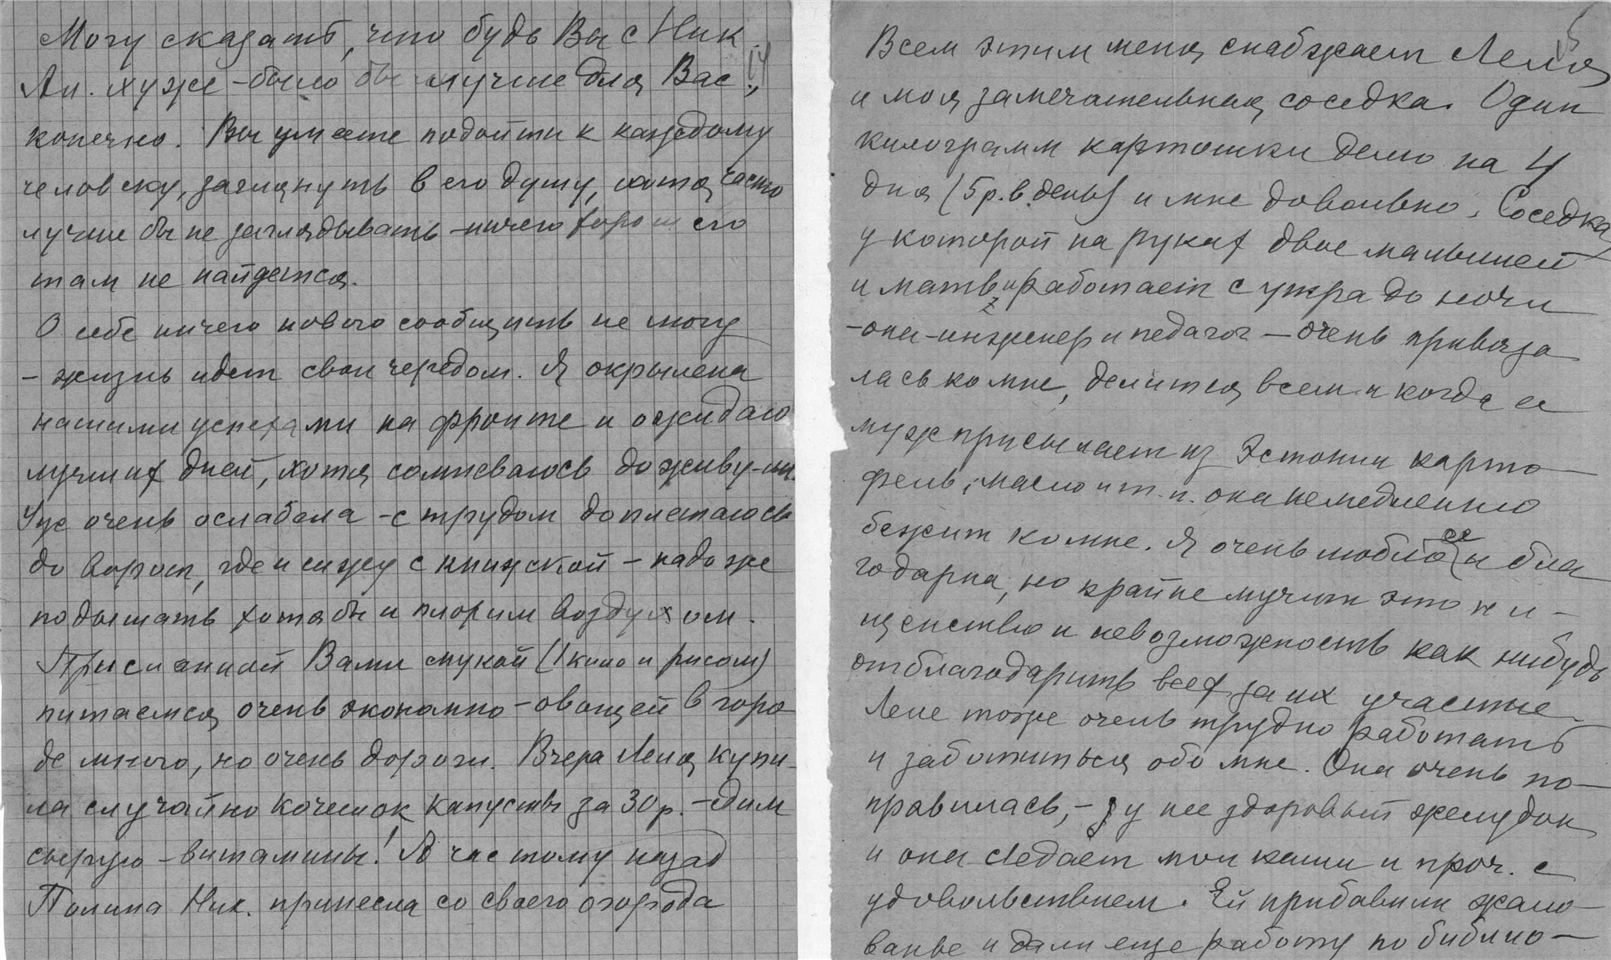 Могу сказать, что будь Вы с Ник
Ан. хуже – было бы лучше для Вас,
конечно. Вы умеете подойти к каждому
человеку, заглянуть в его душу, хотя часто
лучше бы не заглядывать – ничего хорошего
там не найдется.
О себе ничего нового сообщить не могу
– жизнь идет свои чередом. Я окрылена
нашими успехами на фронте и ожидаю
лучших дней, хотя сомневаюсь доживу-ли.
Уже очень ослабела – с трудом доплетаюсь
до ворот, где и сижу с книжкой – надо же
подышать хотя бы и плохим воздухом.
Присланной Вами мукой (1 кило и рисом)
питаемся очень экономно – овощей в горо
де много, но очень дороги. Вчера Леля купи-
ла случайно кочешок капусты за 30 р. – едим
сырую – витамины! А час тому назад
Полина Ник. принесла со своего огорода
15
Всем этим меня снабжает Леля
и моя замечательная соседка. Один
килограмм картошки делю на 4
дня (5 р. в день) и мне довольно. Соседка
у которой на руках двое малышей
и мать и работает с утра до ночи
– она – инженер и педагог – очень привяза
лась ко мне, делится всем и когда ее
муж присылает из Эстонии карто-
фель, масло и т. п. она немедленно
бежит ко мне. Я очень люблю ее и бла
годарна, но крайне мучит это ни-
щенство и невозможность как нибудь
отблагодарить всех за их участие.
Леле тоже очень трудно работать
и заботиться обо мне. Она очень по-
правилась, – у нее здоровый желудок
и она съедает мои каши и проч. с
удовольствием. Ей прибавили жало-
ванье и дали еще работу по библио-